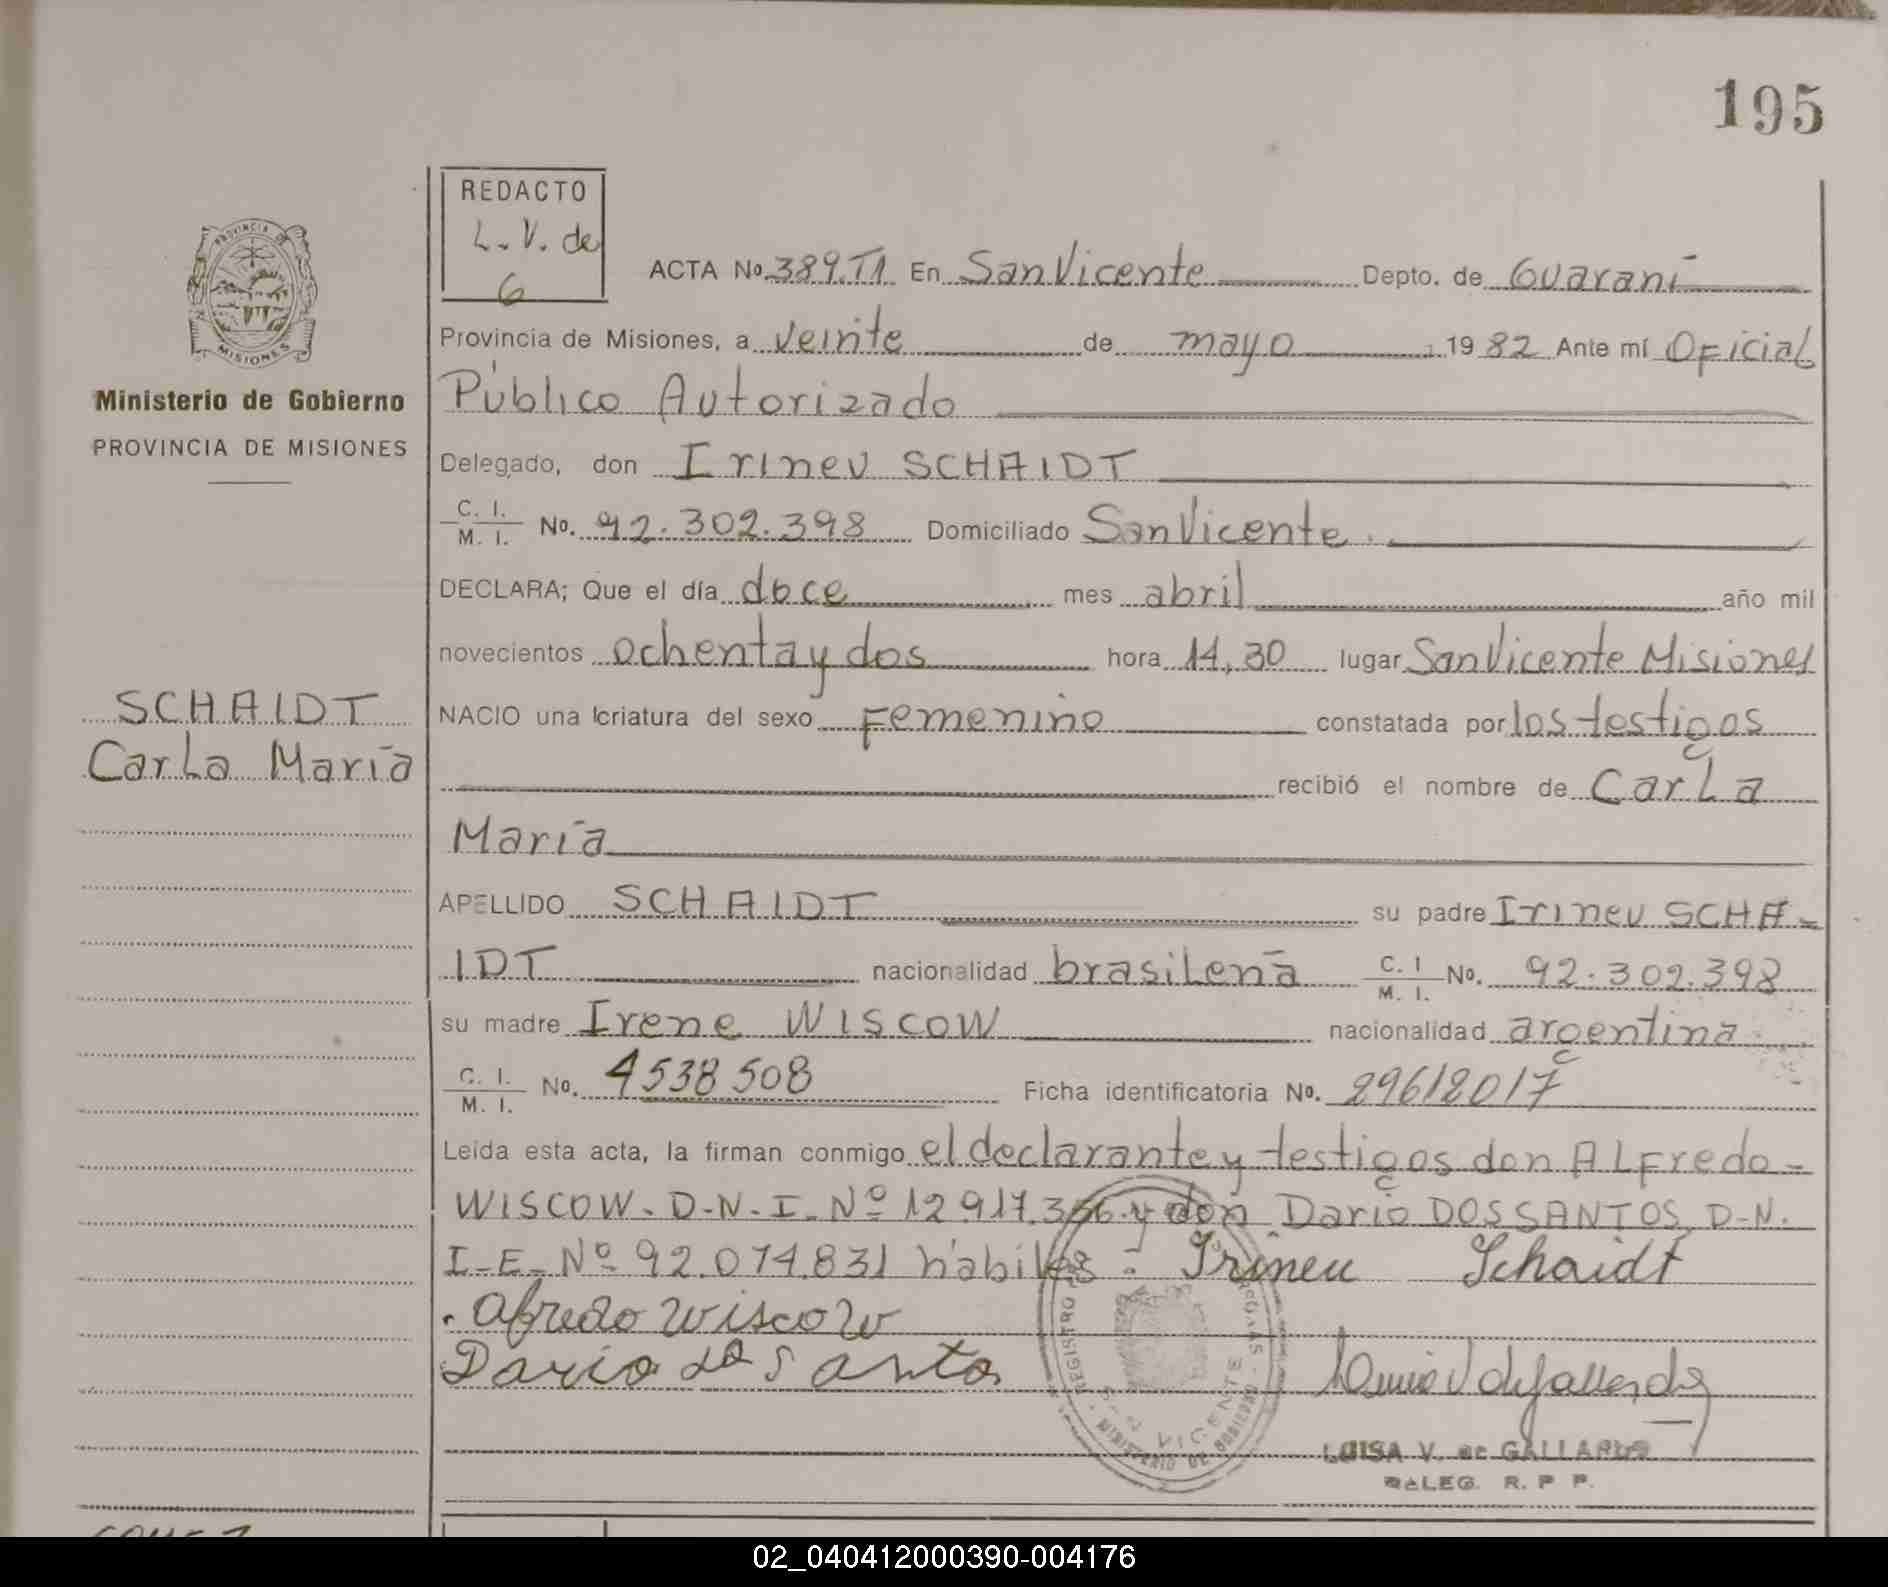 195
REDACTO
L. V. de
G
ACTA No. 389. T1 En San Vicente Depto. de Guaraní
Provincia de Misiones, a veinte de mayo 1982 Ante mí Oficial
Público Autorizado
Delegado, don Irineu SCHAIDT
C. I.
M. I. No. 92.302.398 Domiciliado San Vicente.
DECLARA; Que el día doce mes abril año mil
novecientos ochenta y dos hora 14,30 lugar San Vicente Misiones
NACIO una criatura del sexo Femenino constatada por los testigos
recibió el nombre de Carla
María
APELLIDO SCHAIDT su padre Irineu SCHA-
IDT nacionalidad brasileña C. I
M. I. No. 92.302.398
su madre Irene WISCOW nacionalidad argentina
C. I.
M. I. No. 4538508 Ficha identificatoria No. 29612017
Leída esta acta, la firman conmigo el declarante y testigos don ALFredo-
WISCOW. D-N-I- Nº 12.917.356 y don Dario DOS SANTOS, D-N.
I-E- Nº 92.074.831 hábiles.- Irineu Schaidt
Alfredo Wiscow
Dario dos Santos
LUISA V. de GALLARDO
DELEG. R. P P.
PROVINCIA DE
MISIONES
Ministerio de Gobierno
PROVINCIA DE MISIONES
SCHAIDT
Carla María
REGISTRO
VICENTE
MINISTERIO DE GOBIERNO
02_040412000390-004176